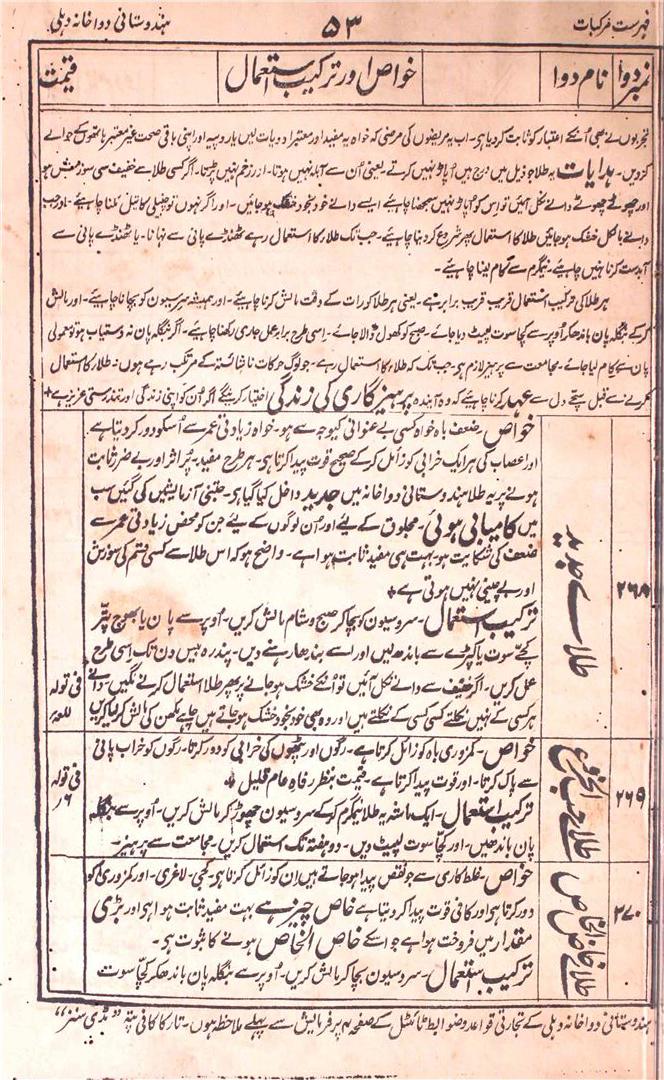 فہرست مرکبات ۵۳ ہندوستانی دواخانہ دہلی
نمبر دوا نام دوا خواص اور ترکیب استعمال قیمت
تجربوں نے بھی اُنکے اعتبار کو ثابت کردیا ہی۔ اب یہ مریضوں کی مرضی کہ خواہ یہ مفید اور معتبر ادویات لیں یا روپیہ اور اپنی باقی صحت غیر معتبر ہاتھوں کے حوالے
کردیں۔ ہدایات یہ طلاء جو ذیل میں درج ہیں اُپاڑ نہیں کرتے یعنی اُن سے آبلہ نہیں ہوتا۔ اور زخم نہیں پڑتا۔ اگر کسی طلا سے خفیف سی سوزش ہو
اور چھوٹے چھوٹے دانے نکل آئیں تو اِس کو اُپاڑ نہیں سمجھنا چاہیئے ایسے دانے خود بخود خشک ہوجائیں۔ اور اگر نہوں تو چنبیلی کا تیل مَلنا چاہیئے۔ اور جب
دانے بالکل خشک ہوجائیں طلا کا استعمال پھر شروع کردینا چاہیئے۔ جب تک طلاء کا استعمال رہے ٹھنڈے پانی سے نہانا۔ یا ٹھنڈے پانی سے
آبدست کرنا نہیں چاہیئے۔ نیمگرم سے کام لینا چاہیئے۔
ہر طلا کی ترکیب استعمال قریب قریب برابر ہے۔ یعنی ہر طلا کو رات کے وقت مالش کرنا چاہیئے۔ اور ہمیشہ سر سیون کو بچانا چاہیئے۔ اور مالش
کرکے بنگلہ پان باندھکر اُوپر سے کچا سوت لپیٹ دیا جائے۔ صبح کو کھول ڈالا جائے۔ اِسی طرح برابر عمل جاری رکھنا چاہیئے۔ اگر بنگلہ پان نہ دستیاب ہو تو معمولی
پان سے کام لیا جائے۔ مجامعت سے پرہیز لازم ہی۔ جب تک کہ طلاء کا استعمال رہے۔ جو لوگ حرکات ناشائستہ کے مرتکب رہے ہوں۔ طلاء کا استعمال
کرنے سے قبل سچے دل سے عہد کرنا چاہیئے کہ وہ آیندہ پرہیزگاری کی زندگی اختیار کرینگے اگر اُن کو اپنی زندگی اور تندرستی عزیز ہے
۲۶۸ طلائے جدید
خواص۔ ضعف باہ خواہ کسی بے عنوانی کیوجہ سے ہو۔ خواہ زیادتی عمر سے اُسکو دور کردیتا ہے
اور اعصاب کی ہر ایک خرابی کو زائل کرکے صحیح قوت پیدا کرتا ہی۔ ہر طرح مفید۔ پُر اثر اور بے ضرر ثابت
ہونے پر یہ طلا ہندوستانی دواخانہ میں جدید داخل کیا گیا ہی۔ جتنی آزمایشیں کی گئیں سب
میں کامیابی ہوئی۔ مجلوق کے لیئے اور اُن لوگوں کے لیئے جن کو محض زیادتی عمر سے
ضعف کی شکایت ہو بہت ہی مفید ثابت ہوا ہے۔ واضح ہو کہ اس طلا سے کسی قسم کی سوزش
اور بے چینی نہیں ہوتی ہے
ترکیب استعمال۔ سر و سیون کو بچا کر صبح و شام مالش کریں۔ اُوپر سے پان یا بھوج پتّر
کچّے سوت یا کپڑے سے باندھ لیں اور اسے بندھا رہنے دیں۔ پندرہ بیس دن تک اِسی طرح
عمل کریں۔ اگر خفیف سے دانے نکل آئیں تو اُنکے خشک ہوجانے پر پھر طلا استعمال کرنے لگیں۔ دانے
ہر کسی کے نہیں نکلتے کسی کسی کے نکلتے ہیں اور وہ بھی خود بخود خشک ہوجاتے ہیں چاہے مکھن کی مالش کرلیا کریں
فی تولہ
۲۶۹ طلائے حب الخروع
خواص۔ کمزوری باہ کو زائل کرتا ہے۔ رگوں اور پٹھوں کی خرابی کو دور کرتا۔ رگوں کو خراب پانی
سے پاک کرتا۔ اور قوت پیدا کرتا ہے۔ قیمت بنظر رفاہ عام قلیل
ترکیب استعمال۔ ایک ماشہ یہ طلا نیمگرم کرکے سر و سیون چھوڑ کر مالش کریں۔ اُوپر سے بنگلہ
پان باندھیں۔ اور کچّا سوت لپیٹ دیں۔ دو ہفتہ تک استعمال کریں۔ مجامعت سے پرہیز۔
فی تولہ ۶ر
۲۷۰ طلائے خاص الخاص
خواص۔ غلط کاری سے جو نقص پیدا ہوجاتے ہیں اِن کو زائل کرتا ہی۔ کجی۔ لاغری۔ اور کمزوری کو
دور کرتا ہی اور کافی قوت پیدا کردیتا ہے خاص چیز ہے بہت مفید ثابت ہوا ہی اور بڑی
مقدار میں فروخت ہوا ہے جو اسکے خاص الخاص ہونے کا ثبوت ہی۔
ترکیب استعمال۔ سر و سیون بچا کر مالش کریں۔ اُوپر سے بنگلہ پان باندھکر کچّا سوت
ہندوستانی دواخانہ دہلی کے تجارتی قواعد و ضوابط ٹائٹل کے صفحہ ۲ پر فرمایش سے پہلے ملاحظہ ہوں۔ تار کا کافی پتہ "مڈی سنز"